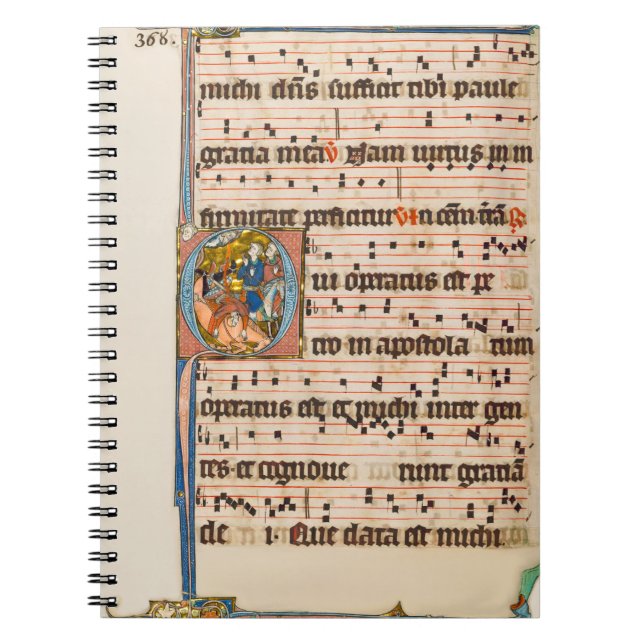 368.
michi dn̄s sufficit tibi paule
gratia mea V̄ Nam uirtus in in
firmitate perficitur V̄ In cōu[er]t̄
ui operatus est pe
tro in apostola tum
operatus est et michi inter gen
tes· et cognoue runt gratiā
de i· Que data est michi.